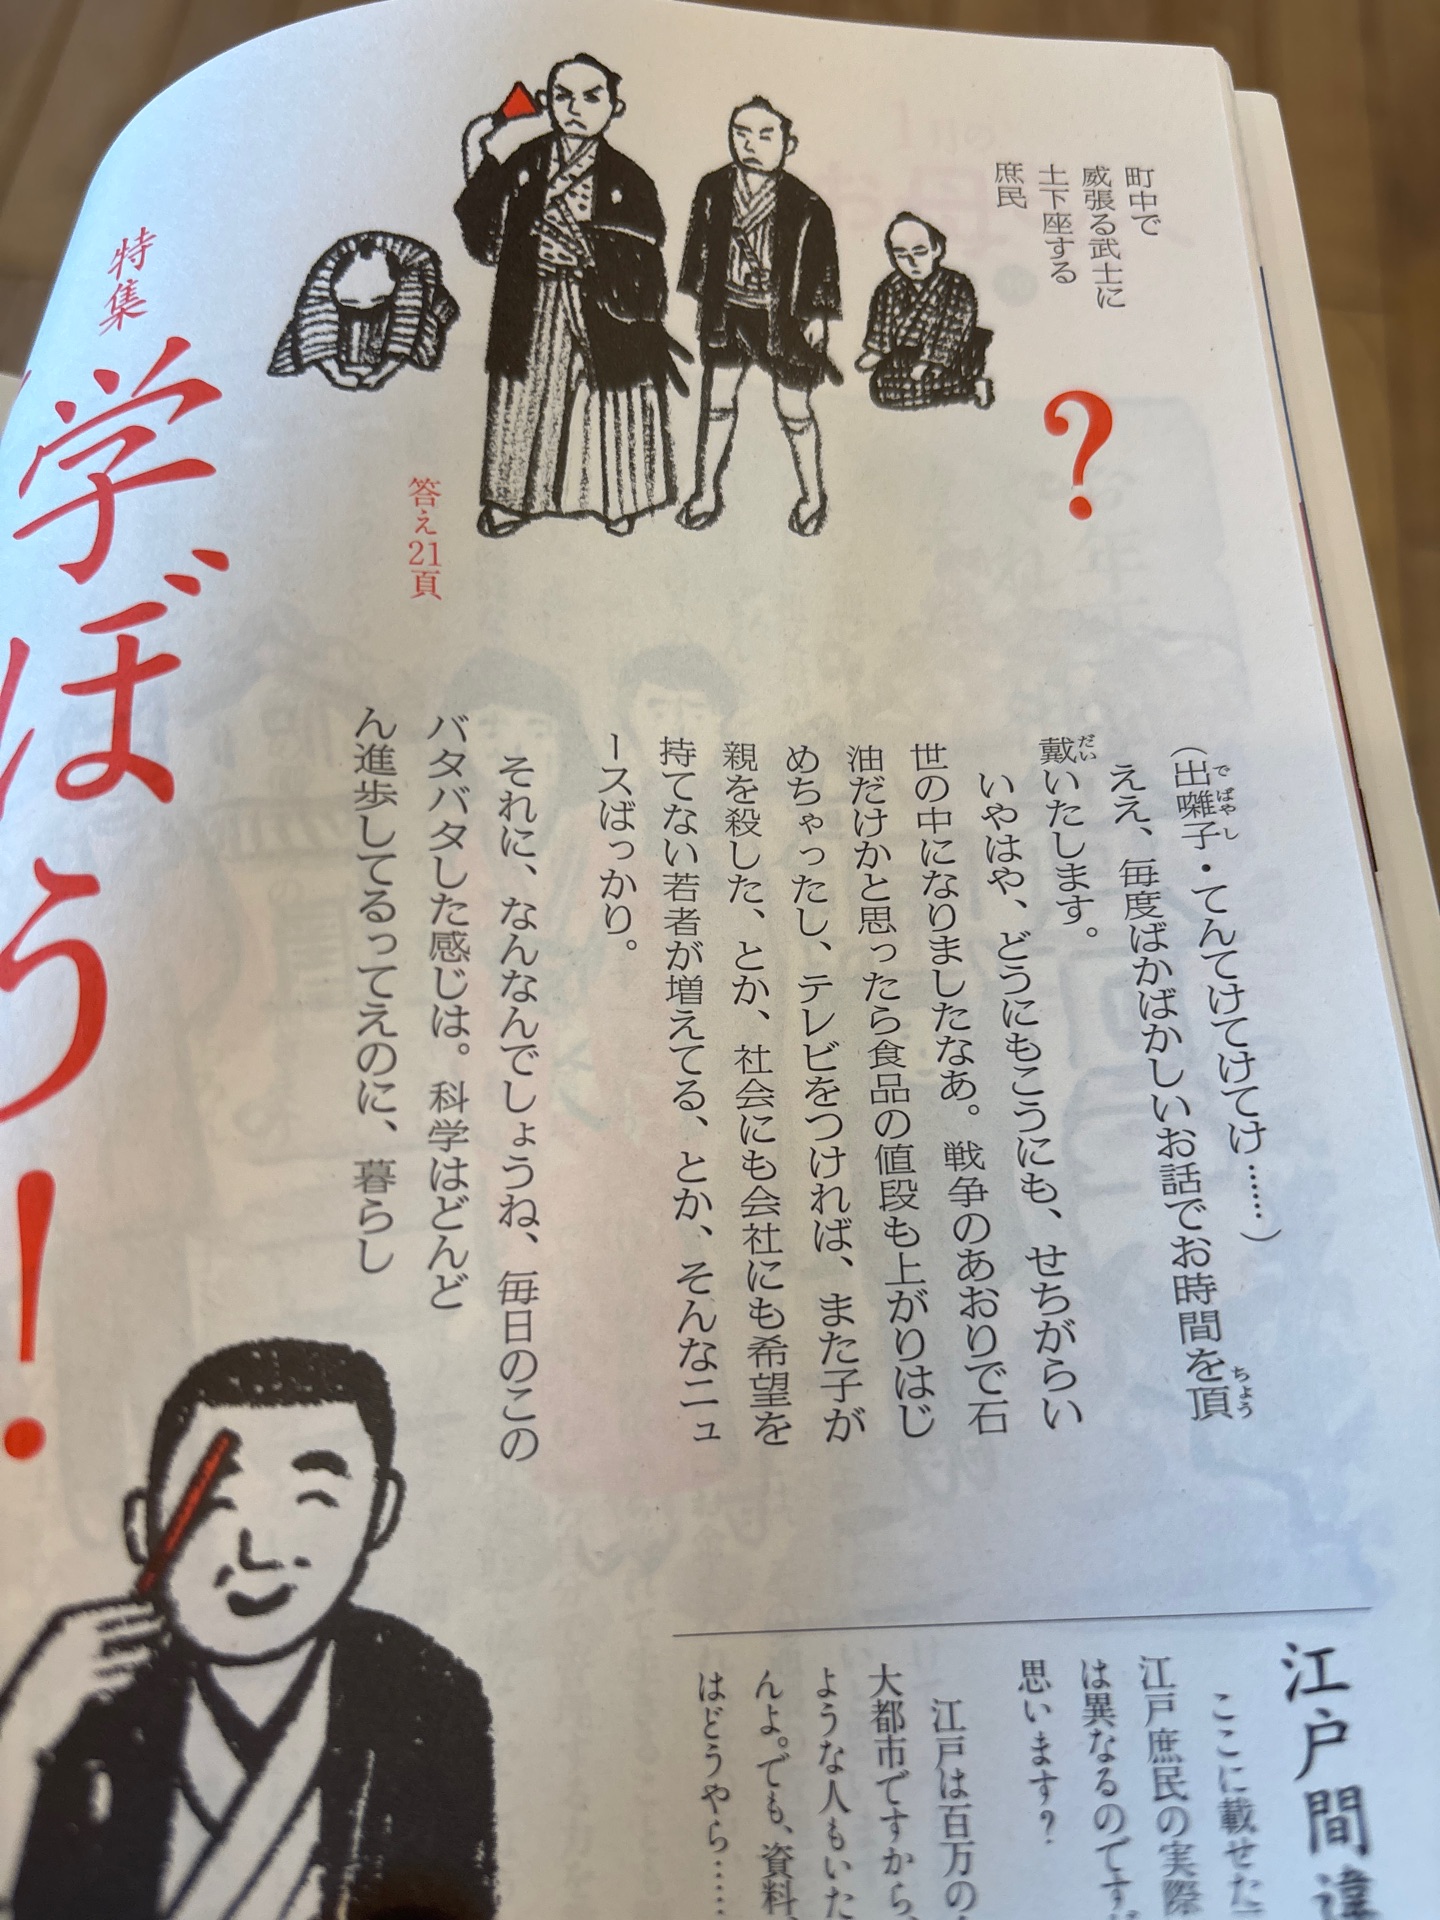 町中で
威張る武士に
土下座する
庶民
?
答え21頁
特集
学ぼう!
(出囃子・てんてけてけてけ……)
ええ、毎度ばかばかしいお話でお時間を頂
戴いたします。
いやはや、どうにもこうにも、せちがらい
世の中になりましたなあ。戦争のあおりで石
油だけかと思ったら食品の値段も上がりはじ
めちゃったし、テレビをつければ、また子が
親を殺した、とか、社会にも会社にも希望を
持てない若者が増えてる、とか、そんなニュ
ースばっかり。
それに、なんなんでしょうね、毎日のこの
バタバタした感じは。科学はどんど
ん進歩してるってえのに、暮らし
江戸間違
ここに載せた
江戸庶民の実際
は異なるのですが
思います?
江戸は百万の
大都市ですから、
ような人もいた
んよ。でも、資料
はどうやら……